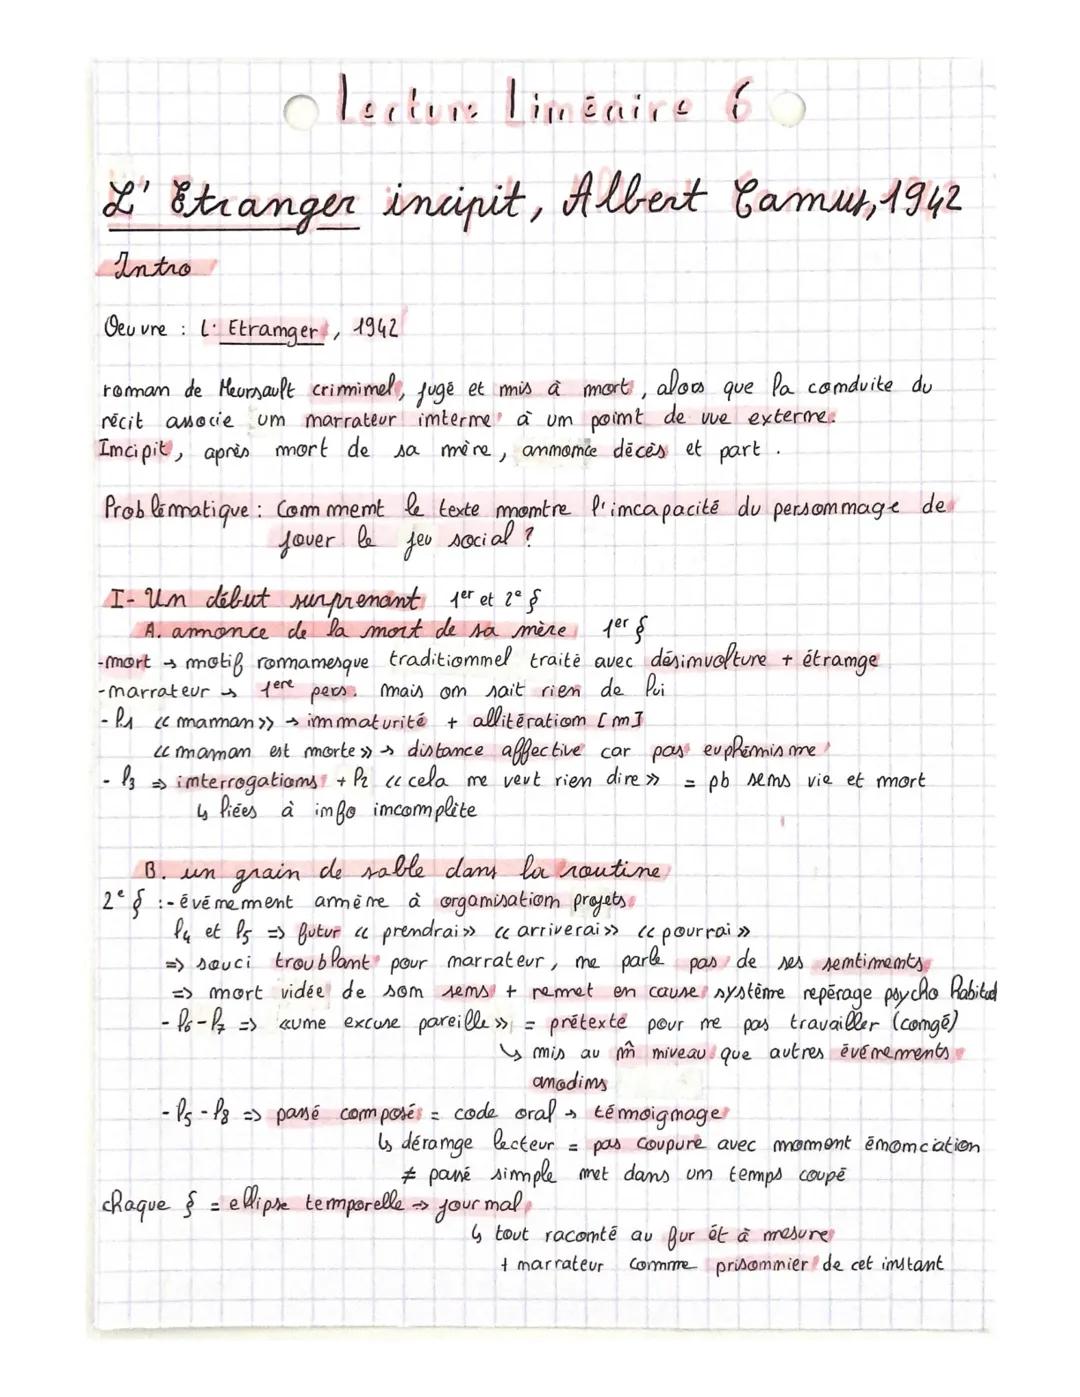 Lecture Linéaire 6
L' Etranger incipit, Albert Camus, 1942
Intro
Oeuvre : L' Etranger, 1942
roman de Meursault criminel, jugé et mis à mort, alors que la conduite du
récit associe un narrateur interne à un point de vue externe.
Incipit, après mort de sa mère, annonce décès et part.
Problématique : Comment le texte montre l'incapacité du personnage de
jouer le jeu social ?
I- Un début surprenant 1er et 2e §
A. annonce de la mort de sa mère 1er §
- mort → motif romanesque traditionnel traité avec désinvolture + étrange
- narrateur → 1ere pers. mais on sait rien de lui
- l1 « maman » → immaturité + allitération [m]
« maman est morte » → distance affective car pas euphémisme
- l3 => interrogations + l2 « cela ne veut rien dire » = pb sens vie et mort
↳ liées à info incomplète
B. un grain de sable dans la routine
2e § : - événement amène à organisation projets
l4 et l5 => futur « prendrai » « arriverai » « pourrai »
=> souci troublant pour narrateur, ne parle pas de ses sentiments
=> mort vidée de son sens + remet en cause système repérage psycho habituel
- l6 - l7 => « une excuse pareille » = prétexte pour ne pas travailler (congé)
↳ mis au m̂ niveau que autres événements
anodins
- l5 - l8 => passé composé = code oral → témoignage
↳ dérange lecteur = pas coupure avec moment énonciation
≠ passé simple met dans un temps coupé
chaque § = ellipse temporelle => journal
↳ tout raconté au fur ét à mesure
+ narrateur comme prisonnier de cet instant